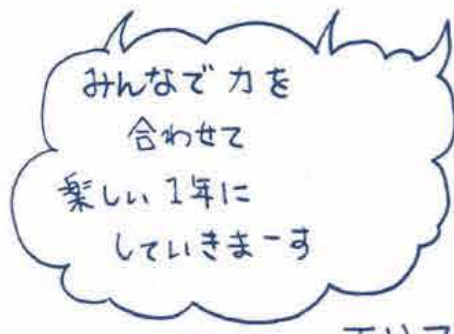 みんなで力を
合わせて
楽しい1年に
していきまーす